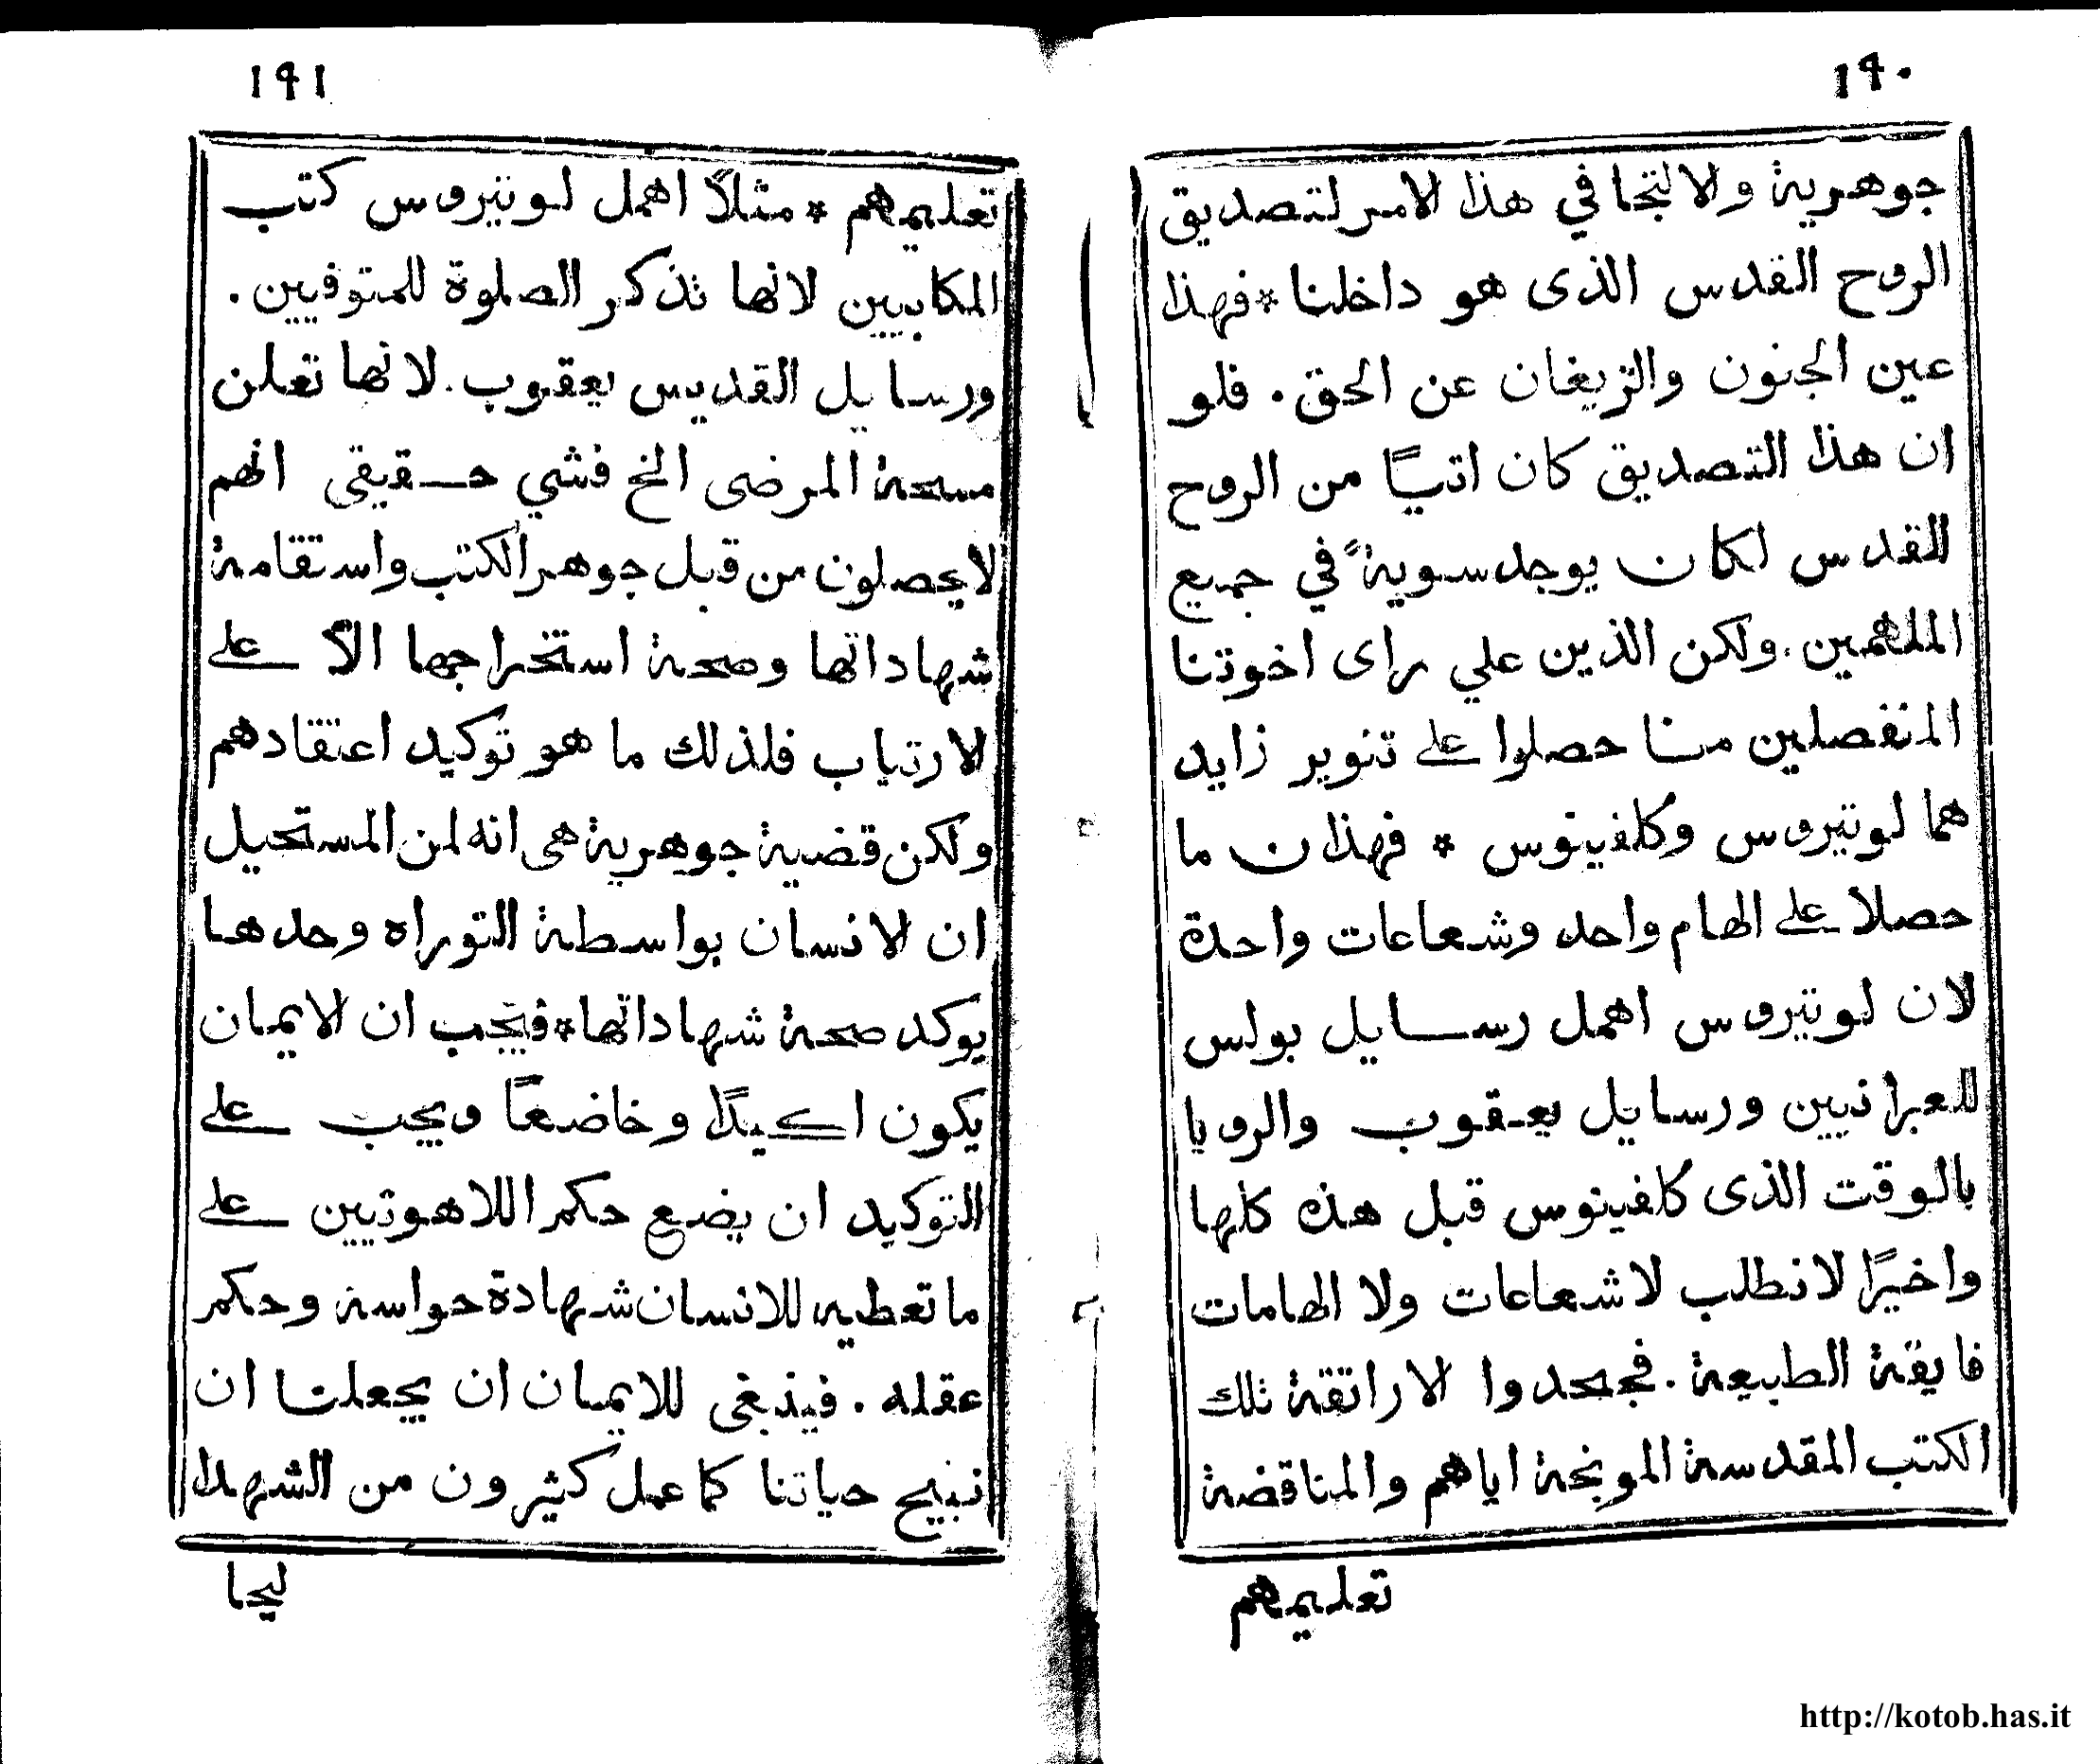 ١٩٠
جوهرية والالتجا في هذا الامر لتصديق
الروح القدس الذى هو داخلنا * فهذا
عين الجنون والزيغان عن الحق . فلو
ان هذا التصديق كان اتيًا من الروح
القدس لكان يوجد سويةً في جميع
الملهمين . ولكن الذين علي راى اخوتنا
المنفصلين منا حصلوا على تنوير زايد
هما لوتيروس وكلفينوس * فهذان ما
حصلا على الهام واحد وشعاعات واحدة
لان لوتيروس اهمل رسايل بولس
للعبرانيين ورسايل يعقوب والرويا
بالوقت الذى كلفينوس قبل هذه كلها
واخيرًا لانطلب لاشعاعات ولا الهامات
فايقة الطبيعة . فجحدوا الاراتقة تلك
الكتب المقدسة الموبخة اياهم والمناقضة
تعليمهم
١٩١
تعليمهم * مثلاً اهمل لوتيروس كتب
المكابيين لانها تذكر الصلوة للمتوفيين .
ورسايل القديس يعقوب . لانها تعلن
مسحة المرضى الخ فشي حقيقى انهم
لايحصلون من قبل جوهر الكتب واستقامة
شهاداتها وصحة استخراجها الاّ على
الارتياب فلذلك ما هو توكيد اعتقادهم
ولكن قضية جوهرية هى انه لمن المستحيل
ان الانسان بواسطة التوراه وحدها
يوكد صحة شهاداتها * فيجب ان الايمان
يكون اكيدًا وخاضعًا ويجب على
التوكيد ان يضع حكم اللاهوتيين على
ما تعطيه للانسان شهادة حواسه وحكم
عقله . فينبغى للايمان ان يجعلنا ان
نبيح حياتنا كما عمل كثيرون من الشهدا
ليحا
http://kotob.has.it